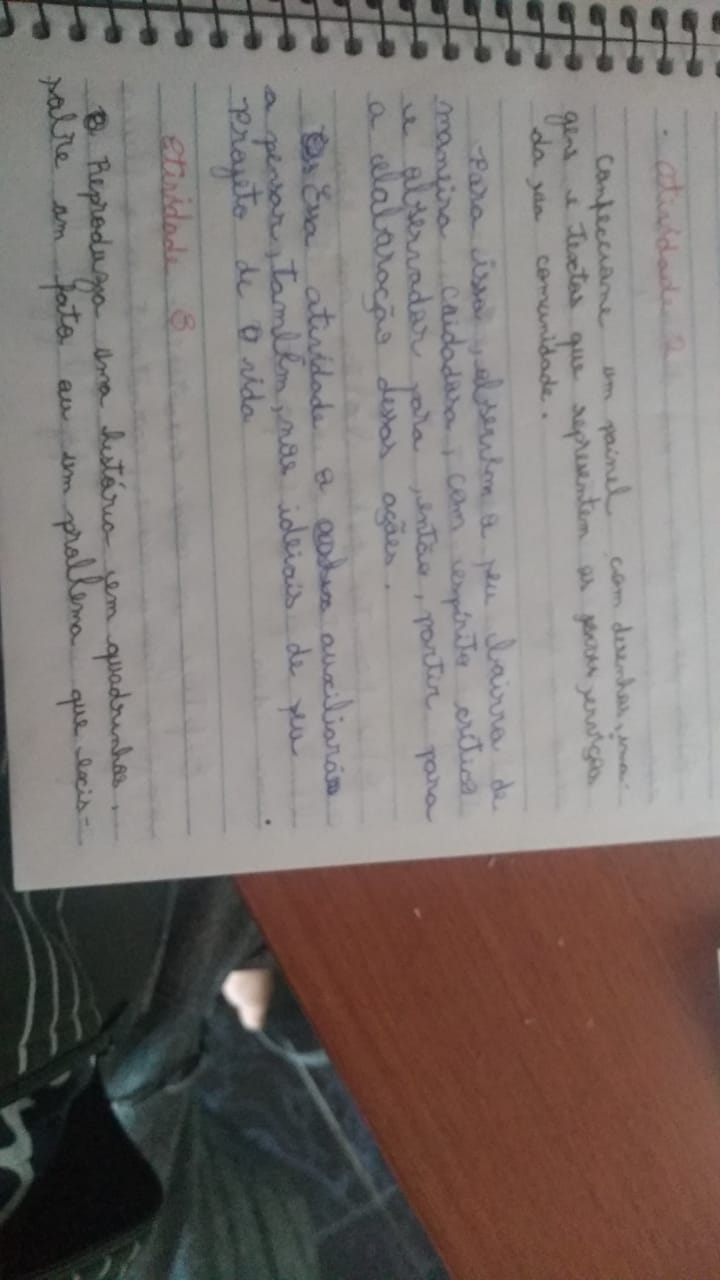 . atividade 2
Confeccione um painel com desenhos, ima-
gens e textos que representem os serviços
da sua comunidade.
Para isso, observem o seu bairro de
maneira cuidadosa, com espírito crítico
e observador para, então, partir para
a elaboração dessas ações.
Essa atividade o auxiliará
a pensar, também, nos ideiais de seu
projeto de vida.
atividade 3
Reproduza uma história em quadrinhos,
sobre um fato ou um problema que exis-